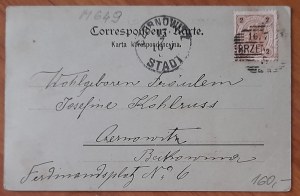 M649
Correspondenz-Karte.
Karta korespondencyjna.
CZERNOWITZ
STADT
2 2
Wohlgeboren Fräulein
Josefine Kohlruss
Czernowitz
Bukowina
Ferdinandsplatz No 6
160,-